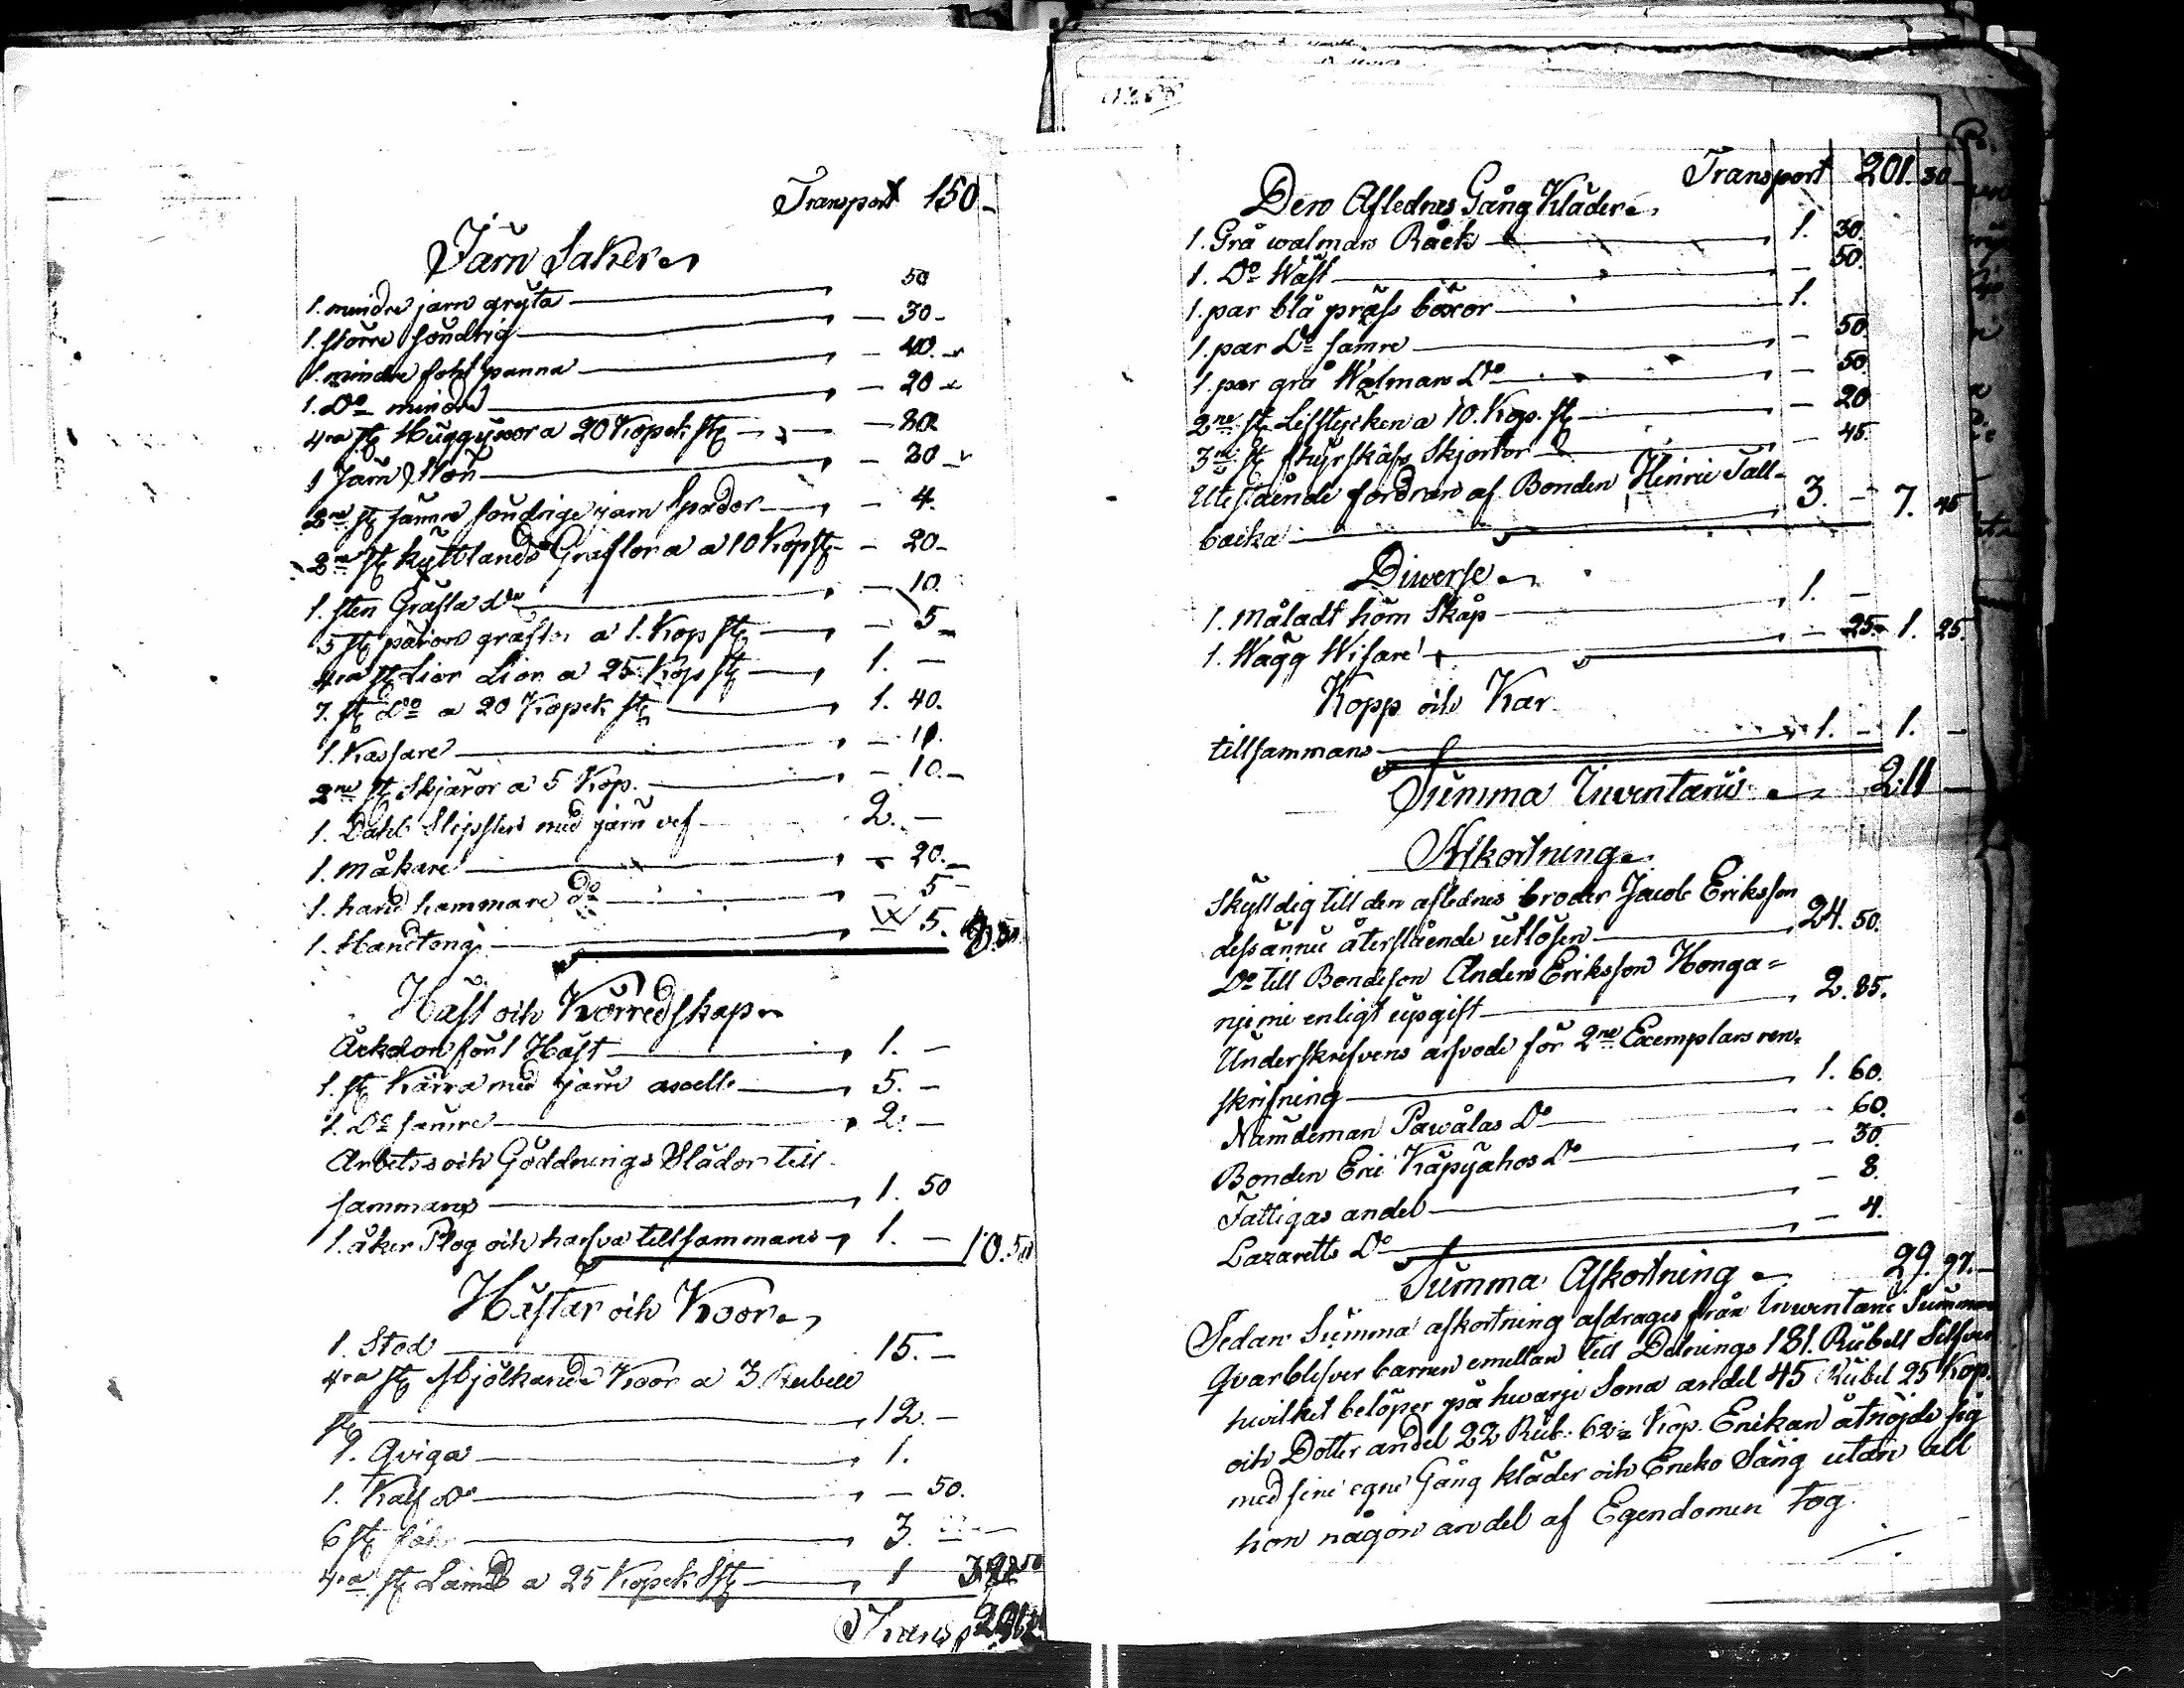 Transport 150 -
Järn Saker
1. mindre jarn gryta 50
1. större söndrig - 30 -
1. mindre stekpanna - 40.
1. Do mindre - 20
4ra st Huggyxor a 20 Kopek st - 80
1 Järn Stör - 20
2ne st sämre söndrige jarn Spador - 4.
2ne st kyttlands Gräftor a 10 Kop st - 20 -
1. sten Gräfta do - 10.
5 st päron gräftor a 1. Kop st - 5
4ra st Lior Lior a 25 Kop st 1. -
7. st do a 20 Kopek st 1. 40.
1. Kassare - 10.
2ne st Skjäror a 5 Kop. - 10. -
1. Dahl Slipsten med järn vef 2. -
1. måkare - 20. -
1. hand hammare do - 5 -
1. Handtong 5.
Häst och Körredskap
Åckdon för 1 Häst 1. -
1. st Kärra med järn axell 5. -
1. Do sämre 2. -
Arbets och Göddnings Slädor till
sammans 1. 50
1. åker Plog och harfva tillsammans 1. - 10. 50
Hästar och Koor
1. Stod 15. -
4ra st Mjölkande Koor a 3 Rubell
st 12. -
1. Qviga 1.
1. Kalf do - 50.
6 st får 3.
4ra st Lamb a 25 Kopek St 1
Transp
Transport 201. 30
Den Aflednes Gång Kläder
1. Grå walmars Råck 1. 30.
1. Do Wäst - 50.
1. par blå präss böxor 1.
1. par Do samre - 50.
1. par grå Walmars Do - 50.
2ne st Lifstycken a 10. Kop. st - 20
3ne st Skjortor - 45.
Utestående fordran af Bonden Henric Tall-
backa 3. - 7. 45
Diwerse
1. Måladt hörn Skåp 1. -
1. Wägg Wisare - 25. 1. 25.
Kopp och Kar
tillsammans 1. - 1. -
Summa Inventarii 211 -
Afkortning
Skylldig till den aflednes broder Jacob Eriksson
dess ännu återstående utlösen 24. 50.
Do till Bondeson Anders Eriksson Honga=
njemi enligt upgift 2. 85.
Underskrefvens arfvode för 2ne Exemplars ren=
skrifning 1. 60.
Nämdeman Pawålas Do - 60.
Bonden Eric Käpyahos Do - 30.
Fattigas andel - 8.
Lazaretts Do - 4.
Summa Afkortning 29. 97. -
Sedan Summa afkortning afdrages från Inventarii Summan
qvarblifver barnen emellan till Delnings 181. Rubell Silfver
hwilket belöper på hwarje Sona andel 45 Rubel 25 Kop.
och Dotter andel 22 Rub. 62½ Kop. Enkan åtnöjde sig
med sine egne Gång kläder och Encko Säng utan att
hon någon andel af Egendomen tog.